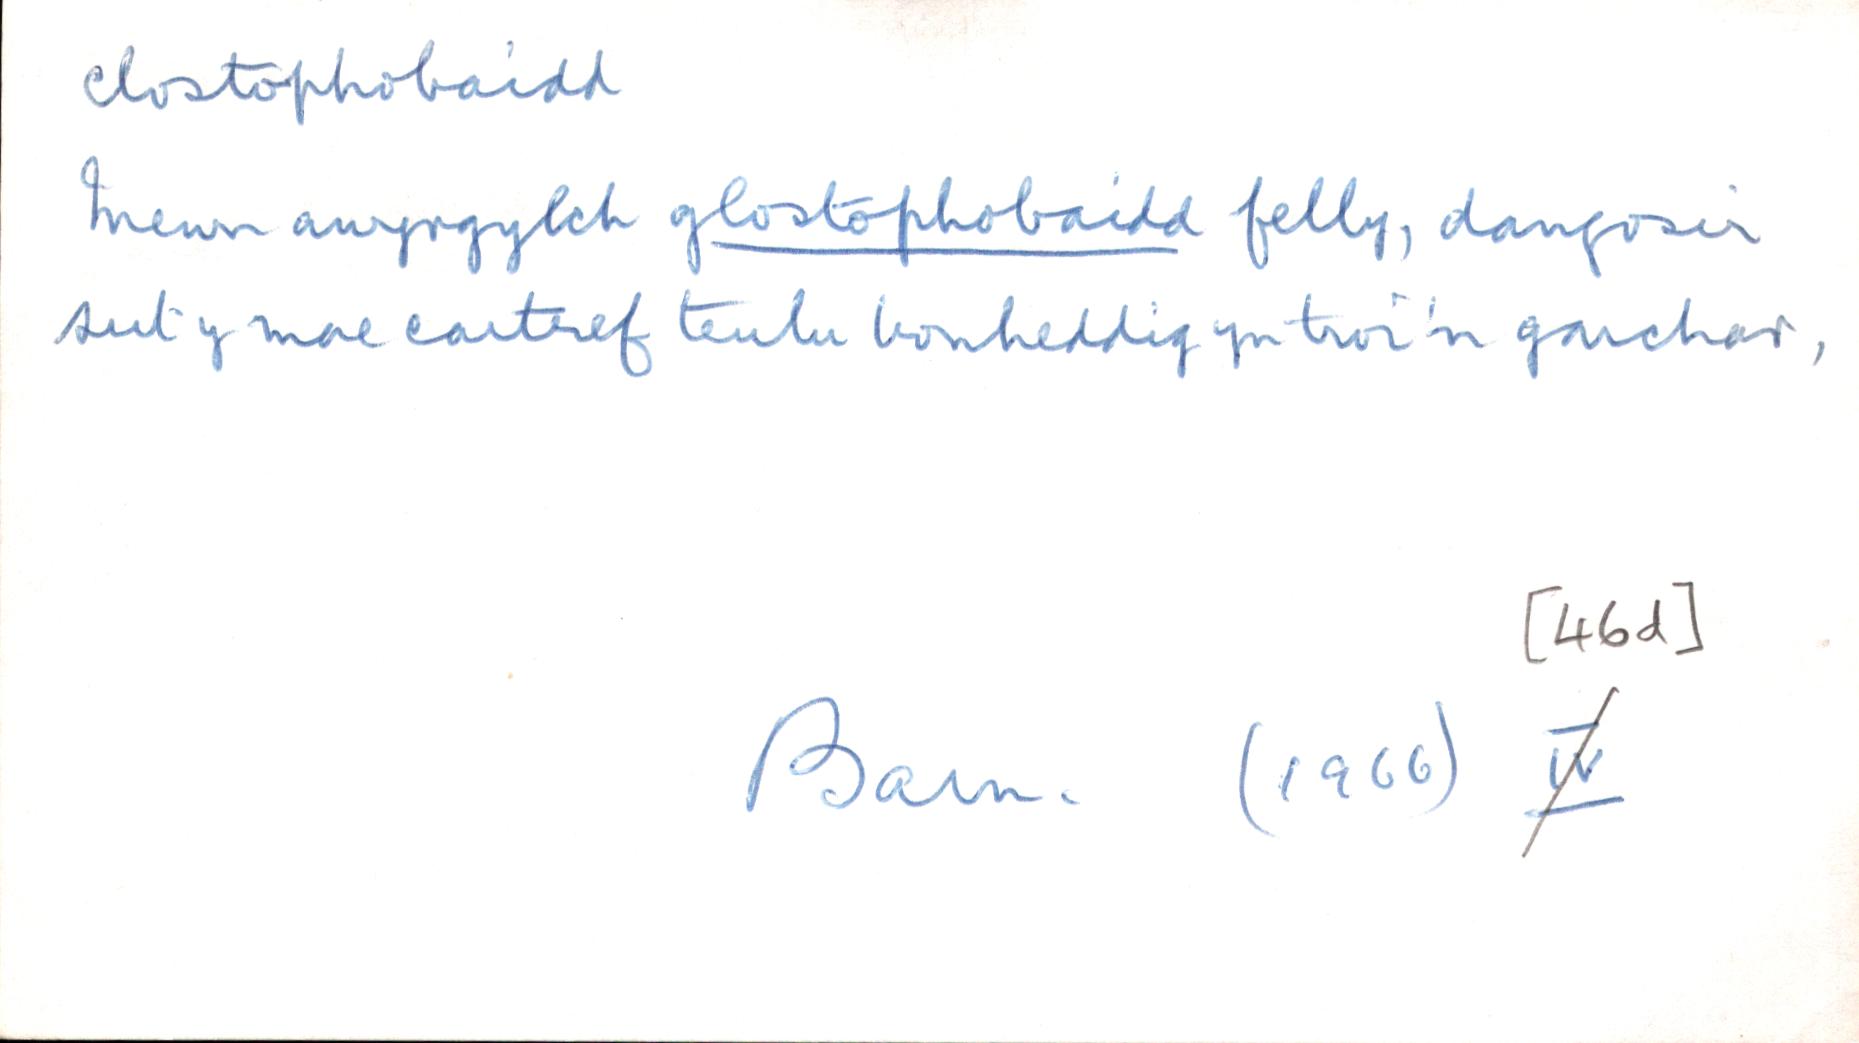 clostophobaidd
Mewn awyrgylch glostophobaidd felly, dangosir
sut y mae cartref teulu bonheddig yn troi'n garchar,
[46d]
Barn. (1966) IV